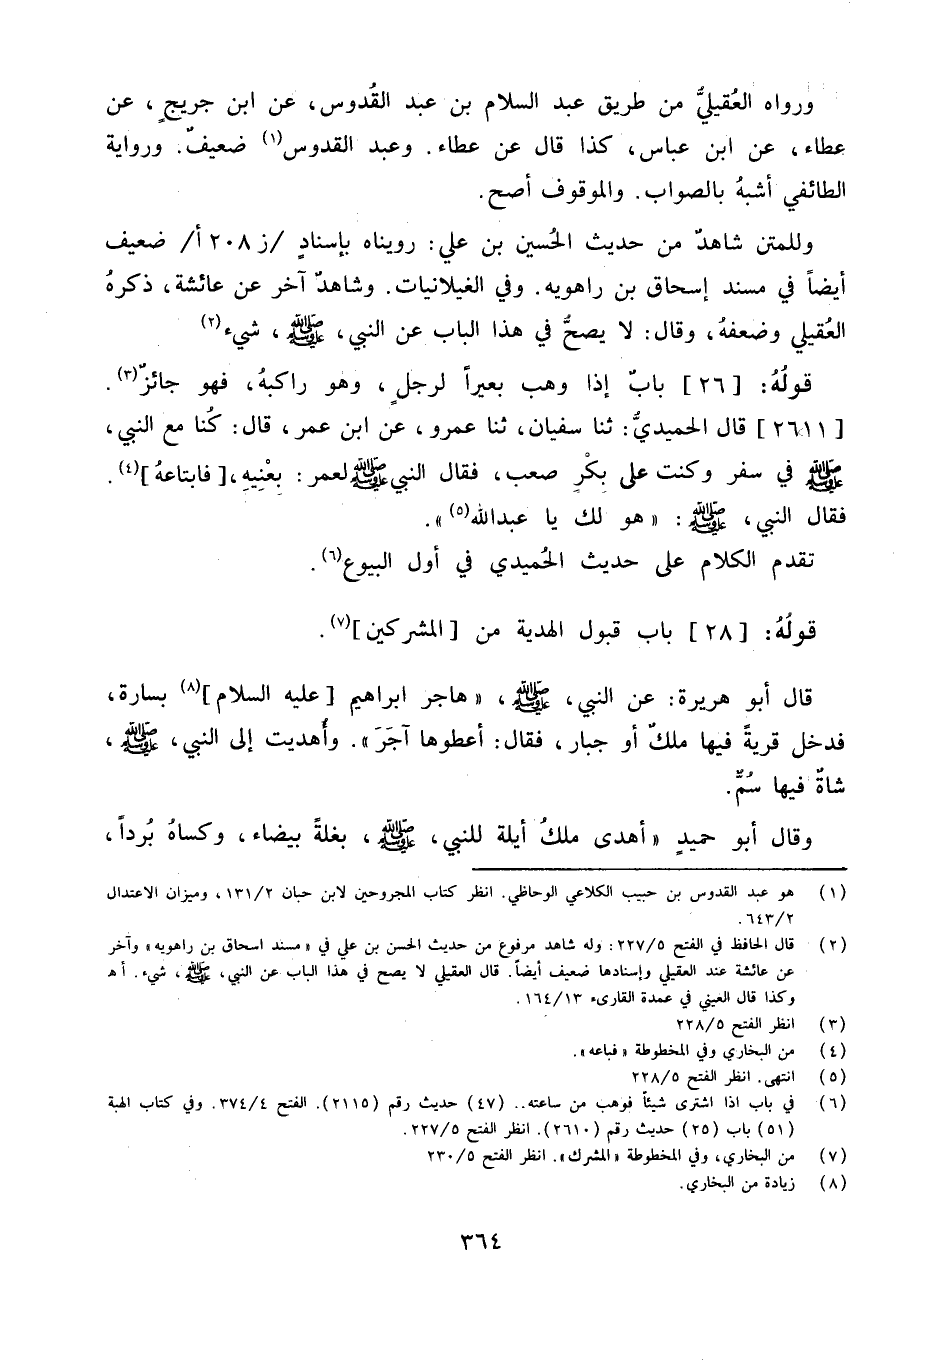 ورواه العُقيليُّ من طريق عبد السلام بن عبد القُدوس، عن ابن جريجٍ، عن
عطاء، عن ابن عباس، كذا قال عن عطاء. وعبد القدوس(١) ضعيفٌ. ورواية
الطائفي أشبهُ بالصواب. والموقوف أصح.
وللمتن شاهدٌ من حديث الحُسين بن علي: رويناه بإسنادٍ /ز ٢٠٨ أ/ ضعيف
أيضاً في مسند إسحاق بن راهويه. وفي الغيلانيات. وشاهدٌ آخر عن عائشة، ذكرهُ
العُقيلي وضعفهُ، وقال: لا يصحُّ في هذا الباب عن النبي، ﷺ، شيء(٢)
قولُهُ: [٢٦] بابٌ إذا وهب بعيراً لرجلٍ، وهو راكبهُ، فهو جائزٌ(٣).
[٢٦١١] قال الحميديُّ: ثنا سفيان، ثنا عمرو، عن ابن عمر، قال: كُنا مع النبي،
ﷺ في سفر وكنت على بِكْرٍ صعب، فقال النبي ﷺ لعمر: بِعْنِيهِ،[فابتاعهُ](٤).
فقال النبي، ﷺ: «هو لك يا عبدالله(٥)».
تقدم الكلام على حديث الحُميدي في أول البيوع(٦).
قولُهُ: [٢٨] باب قبول الهدية من [المشركين](٧).
قال أبو هريرة: عن النبي، ﷺ، «هاجر ابراهيم [عليه السلام](٨) بسارة،
فدخل قريةً فيها ملكٌ أو جبار، فقال: أعطوها آجَرَ». وأُهديت إلى النبي، ﷺ،
شاةٌ فيها سُمٌّ.
وقال أبو حميدٍ «أهدى ملكُ أيلة للنبي، ﷺ، بغلةً بيضاء، وكساهُ بُرداً،
(١) هو عبد القدوس بن حبيب الكلاعي الوحاظي. انظر كتاب المجروحين لابن حبان ١٣١/٢، وميزان الاعتدال
٦٤٣/٢.
(٢) قال الحافظ في الفتح ٢٢٧/٥: وله شاهد مرفوع من حديث الحسن بن علي في «مسند اسحاق بن راهويه» وآخر
عن عائشة عند العقيلي وإسنادها ضعيف أيضاً. قال العقيلي لا يصح في هذا الباب عن النبي، ﷺ، شيء. أ هـ
وكذا قال العيني في عمدة القارىء ١٦٤/١٣.
(٣) انظر الفتح ٢٢٨/٥
(٤) من البخاري وفي المخطوطة «فباعه».
(٥) انتهى. انظر الفتح ٢٢٨/٥
(٦) في باب اذا اشترى شيئاً فوهب من ساعته.. (٤٧) حديث رقم (٢١١٥). الفتح ٣٧٤/٤. وفي كتاب الهبة
(٥١) باب (٢٥) حديث رقم (٢٦١٠). انظر الفتح ٢٢٧/٥.
(٧) من البخاري، وفي المخطوطة «المشرك». انظر الفتح ٢٣٠/٥
(٨) زيادة من البخاري.
٣٦٤